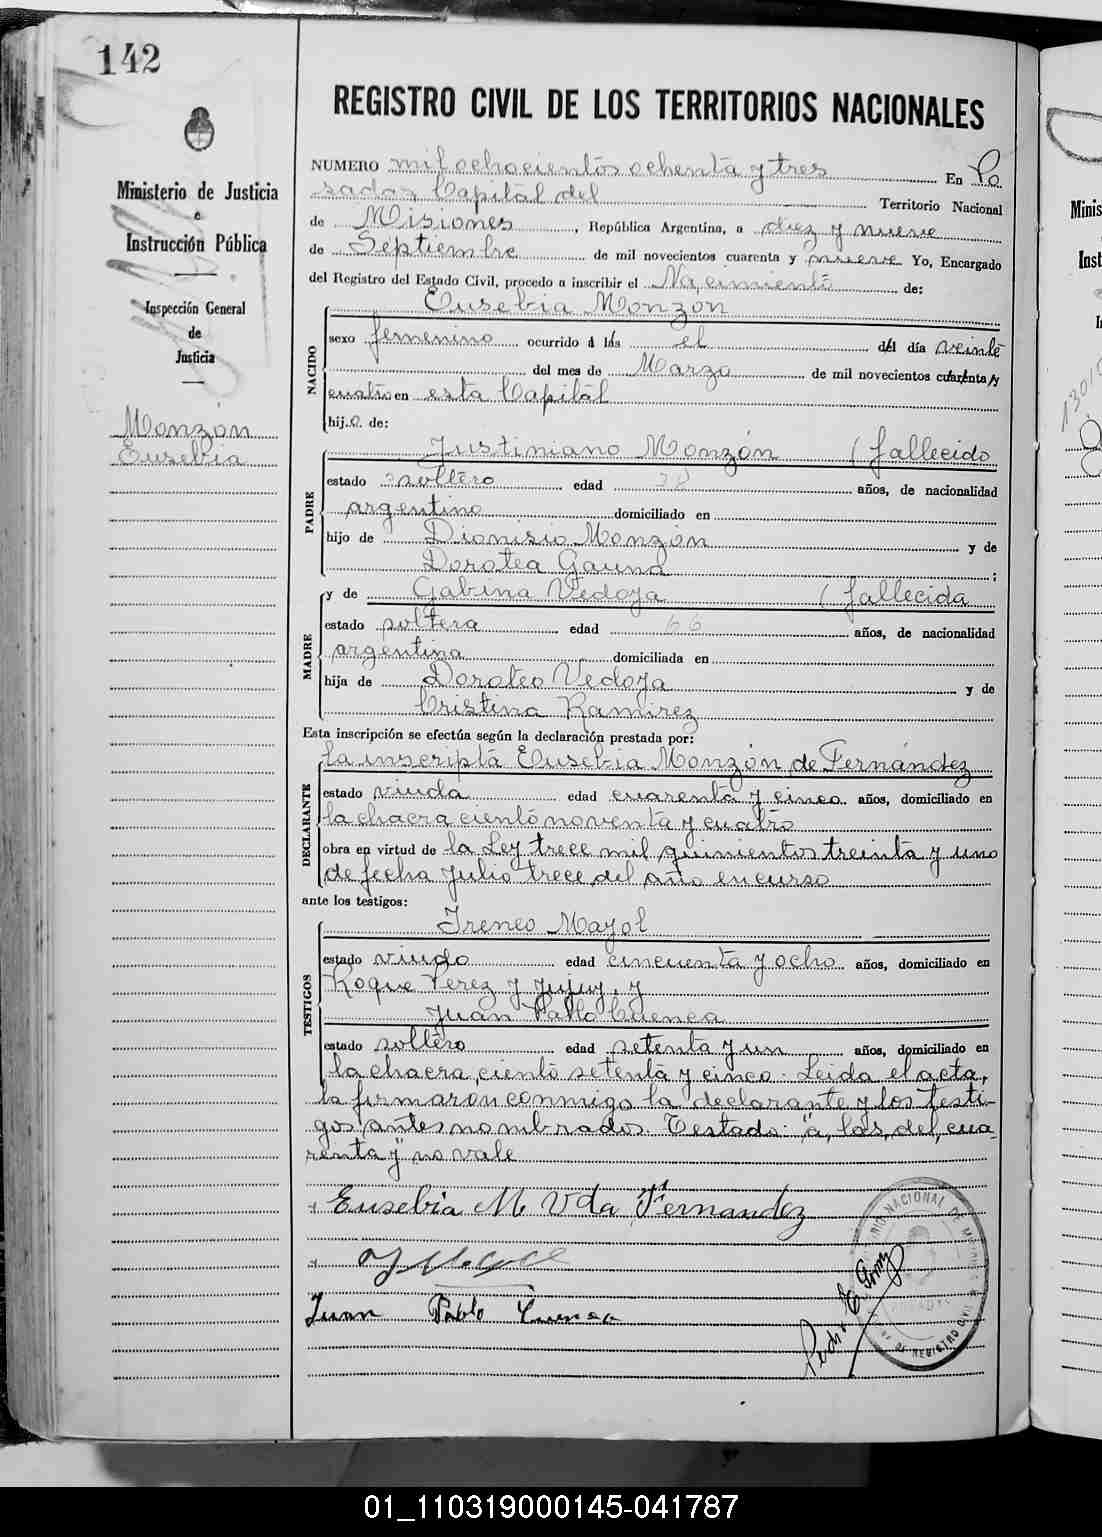 142
Ministerio de Justicia
e
Instrucción Pública
Inspección General
de
Justicia
Monzón
Eusebia
REGISTRO CIVIL DE LOS TERRITORIOS NACIONALES
NUMERO mil ochocientos ochenta y tres En Po
sadas Capital del Territorio Nacional
de Misiones, República Argentina, a diez y nueve
de Septiembre de mil novecientos cuarenta y nueve Yo, Encargado
del Registro del Estado Civil, procedo a inscribir el Nacimiento de:
NACIDO
Eusebia Monzón
sexo femenino ocurrido á las el del día veinte
del mes de Marzo de mil novecientos cuarenta y
cuatro en esta Capital
hij.a de:
PADRE
Justiniano Monzón (fallecido
estado soltero edad 38 años, de nacionalidad
argentino domiciliado en
hijo de Dionisio Monzón y de
Dorotea Gauna ;
MADRE
y de Gabina Vedoya (fallecida
estado soltera edad 66 años, de nacionalidad
argentina domiciliada en
hija de Doroteo Vedoya y de
Cristina Ramirez
Esta inscripción se efectúa según la declaración prestada por:
DECLARANTE
la inscripta Eusebia Monzón de Fernández
estado viuda edad cuarenta y cinco años, domiciliado en
la chacra ciento noventa y cuatro
obra en virtud de la Ley trece mil quinientos treinta y uno
de fecha Julio trece del año en curso
ante los testigos:
TESTIGOS
Ireneo Mayol
estado viudo edad cincuenta y ocho años, domiciliado en
Roque Perez y Jujuy, y
Juan Pablo Cuenca
estado soltero edad setenta y un años, domiciliado en
la chacra ciento setenta y cinco. Leida el acta,
la firmaron conmigo la declarante y los testi-
gos antes nombrados. Testado: "a, las, del, cua-
renta y" no vale
Eusebia M Vda Fernandez
Juan Pablo Cuenca
01_110319000145-041787